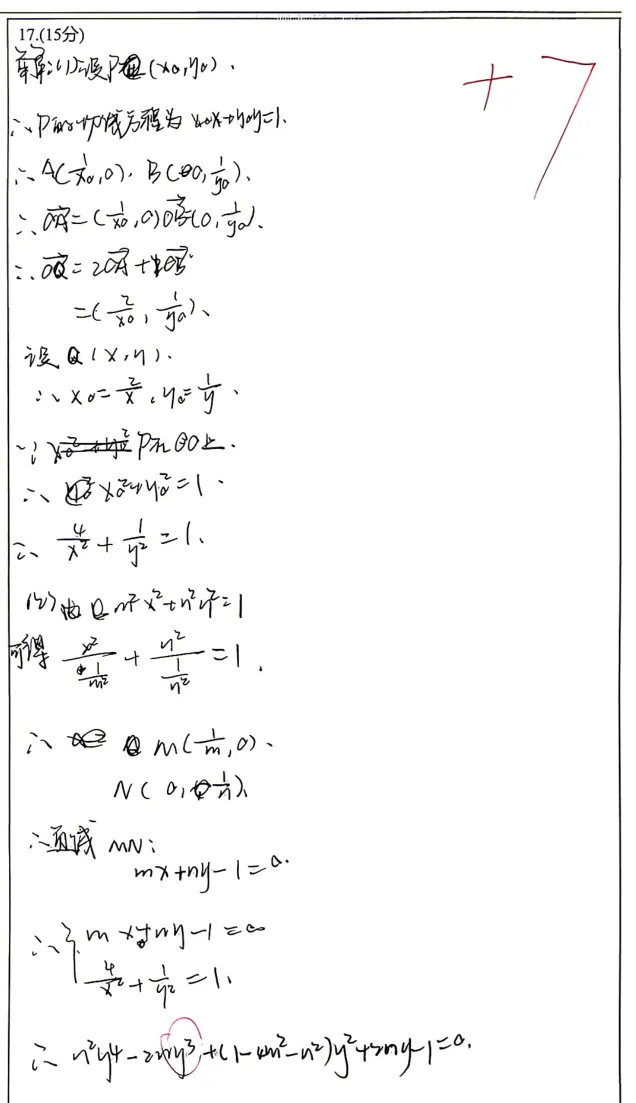 17.(15分)
+7
解:(1)设P(x₀,y₀).
∴P的切线方程为 x₀x+y₀y=1.
∴A(1/x₀,0). B(0,1/y₀).
∴OA=(1/x₀,0) OB=(0,1/y₀).
∴OQ=2OA+OB
=(2/x₀, 1/y₀).
设Q(x,y).
∴x₀=2/x, y₀=1/y.
∵P在⊙O上.
∴x₀²+y₀²=1.
∴4/x²+1/y²=1.
(2)由 m²x²+n²y²=1
可得 x²/(1/m²) + y²/(1/n²) =1.
∴M(1/m,0).
N(0,1/n).
∴直线MN:
mx+ny-1=0.
∴{mx+ny-1=0
4/x²+1/y²=1.
∴n²y⁴-2ny³+(1-4m²-n²)y²+2ny-1=0.